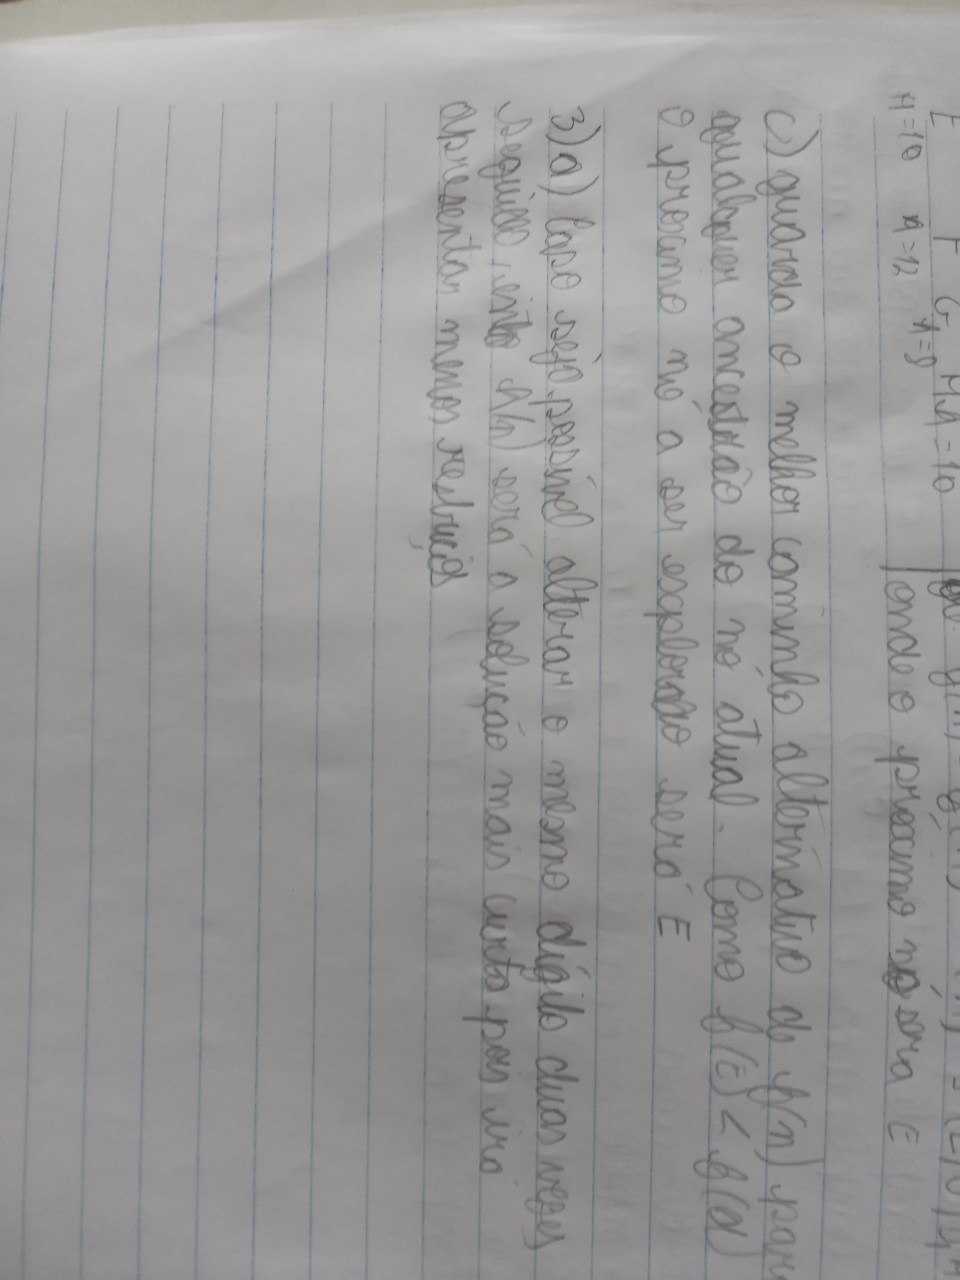 E F G H h=10
h=10 h=12 h=9
onde o próximo nó sera E
c) guarda o melhor caminho alternativo de f(n) para
qualquer ancestrão do nó atual. Como f(E) < f(d)
o proximo nó a ser explorado será E
3) a) Caso seja possivel alterar o mesmo dígito duas vezes
seguidas, então h(n) será a solução mais curta pois irá
apresentar menos restrições